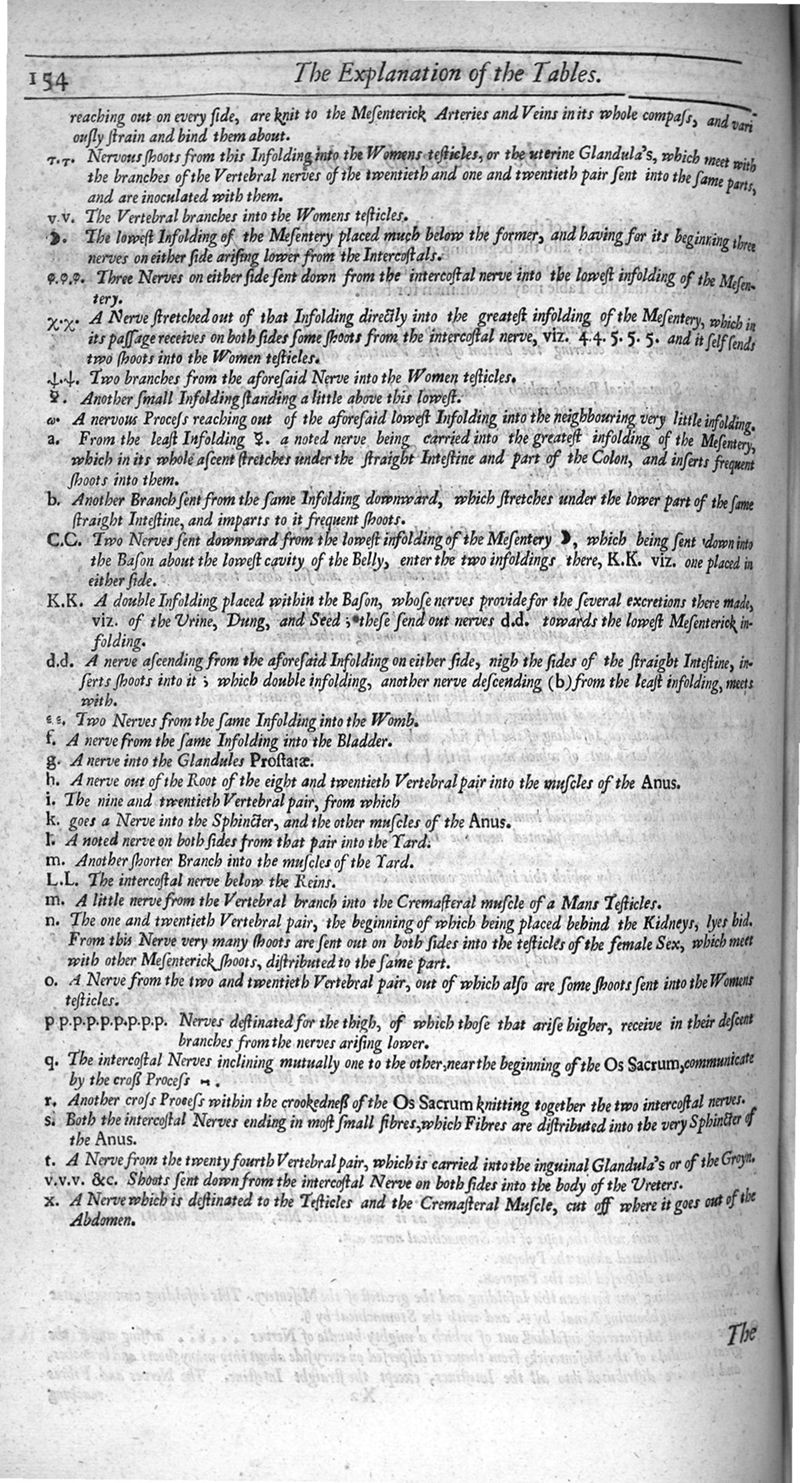 154 The Explanation of the Tables.
reaching out on every ſide, are knit to the Meſenterick Arteries and Veins in its whole compaſs, and vari
ouſly ſtrain and bind them about.
τ.τ. Nervous ſhoots from this Infolding into the Womens teſticles, or the uterine Glandula's, which meet with
the branches of the Vertebral nerves of the twentieth and one and twentieth pair ſent into the ſame parts,
and are inoculated with them.
v.v. The Vertebral branches into the Womens teſticles.
☽. The loweſt Infolding of the Meſentery placed much below the former, and having for its beginning three
nerves on either ſide ariſing lower from the Intercoſtals.
φ.φ.φ. Three Nerves on either ſide ſent down from the intercoſtal nerve into the loweſt infolding of the Meſen-
tery.
χ.χ. A Nerve ſtretched out of that Infolding directly into the greateſt infolding of the Meſentery, which in
its paſſage receives on both ſides ſome ſhoots from the intercoſtal nerve, viz. 4.4. 5. 5. 5. and it ſelf ſends
two ſhoots into the Women teſticles.
ψ.ψ. Two branches from the aforeſaid Nerve into the Women teſticles.
☿. Another ſmall Infolding ſtanding a little above this loweſt.
ω. A nervous Proceſs reaching out of the aforeſaid loweſt Infolding into the neighbouring very little infolding.
a. From the leaſt Infolding ☿. a noted nerve being carried into the greateſt infolding of the Meſentery,
which in its whole aſcent ſtretches under the ſtraight Inteſtine and part of the Colon, and inſerts frequent
ſhoots into them.
b. Another Branch ſent from the ſame Infolding downward, which ſtretches under the lower part of the ſame
ſtraight Inteſtine, and imparts to it frequent ſhoots.
C.C. Two Nerves ſent downward from the loweſt infolding of the Meſentery ☽, which being ſent down into
the Baſon about the loweſt cavity of the Belly, enter the two infoldings there, K.K. viz. one placed in
either ſide.
K.K. A double Infolding placed within the Baſon, whoſe nerves provide for the ſeveral excretions there made,
viz. of the Urine, Dung, and Seed ; theſe ſend out nerves d.d. towards the loweſt Meſenterick in-
folding.
d.d. A nerve aſcending from the aforeſaid Infolding on either ſide, nigh the ſides of the ſtraight Inteſtine, in-
ſerts ſhoots into it ; which double infolding, another nerve deſcending (b) from the leaſt infolding, meets
with.
e e. Two Nerves from the ſame Infolding into the Womb.
f. A nerve from the ſame Infolding into the Bladder.
g. A nerve into the Glandules Proſtatæ.
h. A nerve out of the Root of the eight and twentieth Vertebral pair into the muſcles of the Anus.
i. The nine and twentieth Vertebral pair, from which
k. goes a Nerve into the Sphincter, and the other muſcles of the Anus.
l. A noted nerve on both ſides from that pair into the Yard.
m. Another ſhorter Branch into the muſcles of the Yard.
L.L. The intercoſtal nerve below the Reins.
m. A little nerve from the Vertebral branch into the Cremaſteral muſcle of a Mans Teſticles.
n. The one and twentieth Vertebral pair, the beginning of which being placed behind the Kidneys, lyes hid.
From this Nerve very many ſhoots are ſent out on both ſides into the teſticles of the female Sex, which meet
with other Meſenterick ſhoots, diſtributed to the ſame part.
o. A Nerve from the two and twentieth Vertebral pair, out of which alſo are ſome ſhoots ſent into the Womens
teſticles.
p p.p.p.p.p.p.p. Nerves deſtinated for the thigh, of which thoſe that ariſe higher, receive in their deſcent
branches from the nerves ariſing lower.
q. The intercoſtal Nerves inclining mutually one to the other, near the beginning of the Os Sacrum, communicate
by the croſs Proceſs .
r. Another croſs Proceſs within the crookedneſs of the Os Sacrum knitting together the two intercoſtal nerves.
s. Both the intercoſtal Nerves ending in moſt ſmall fibres, which Fibres are diſtributed into the very Sphincter of
the Anus.
t. A Nerve from the twenty fourth Vertebral pair, which is carried into the inguinal Glandula's or of the Groyn.
v.v.v. &c. Shoots ſent down from the intercoſtal Nerve on both ſides into the body of the Ureters.
x. A Nerve which is deſtinated to the Teſticles and the Cremaſteral Muſcle, cut off where it goes out of the
Abdomen.
The